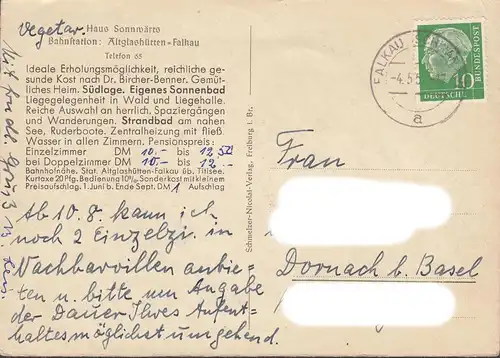 Vegetar. Haus Sonnwärts
Bahnstation: Altglashütten-Falkau
Telefon 65
Ideale Erholungsmöglichkeit, reichliche ge-
sunde Kost nach Dr. Bircher-Benner. Gemüt-
liches Heim. Südlage. Eigenes Sonnenbad
Liegegelegenheit in Wald und Liegehalle.
Reiche Auswahl an herrlich. Spaziergängen
und Wanderungen. Strandbad am nahen
See, Ruderboote. Zentralheizung mit fließ.
Wasser in allen Zimmern. Pensionspreis:
Einzelzimmer DM 10.- bis 12.50
bei Doppelzimmer DM 10.- bis 12.-
Bahnhofnähe. Stat. Altglashütten-Falkau üb. Titisee.
Kurtaxe 20 Pfg. Bedienung 10% Sonderkost mit kleinem
Preisaufschlag. 1. Juni b. Ende Sept. DM 1 Aufschlag
Ab 10.8. kann ich
noch 2 Einzelzi. in
Nachbarvillen anbie-
ten u. bitte um Angabe
der Dauer Ihres Aufent-
haltes möglichst umgehend.
Mit
Schmelzer-Nicolai-Verlag, Freiburg i. Br.
FALKAU
-4.5.5
a
10
DEUTSCHE
BUNDESPOST
Frau
Dornach b. Basel